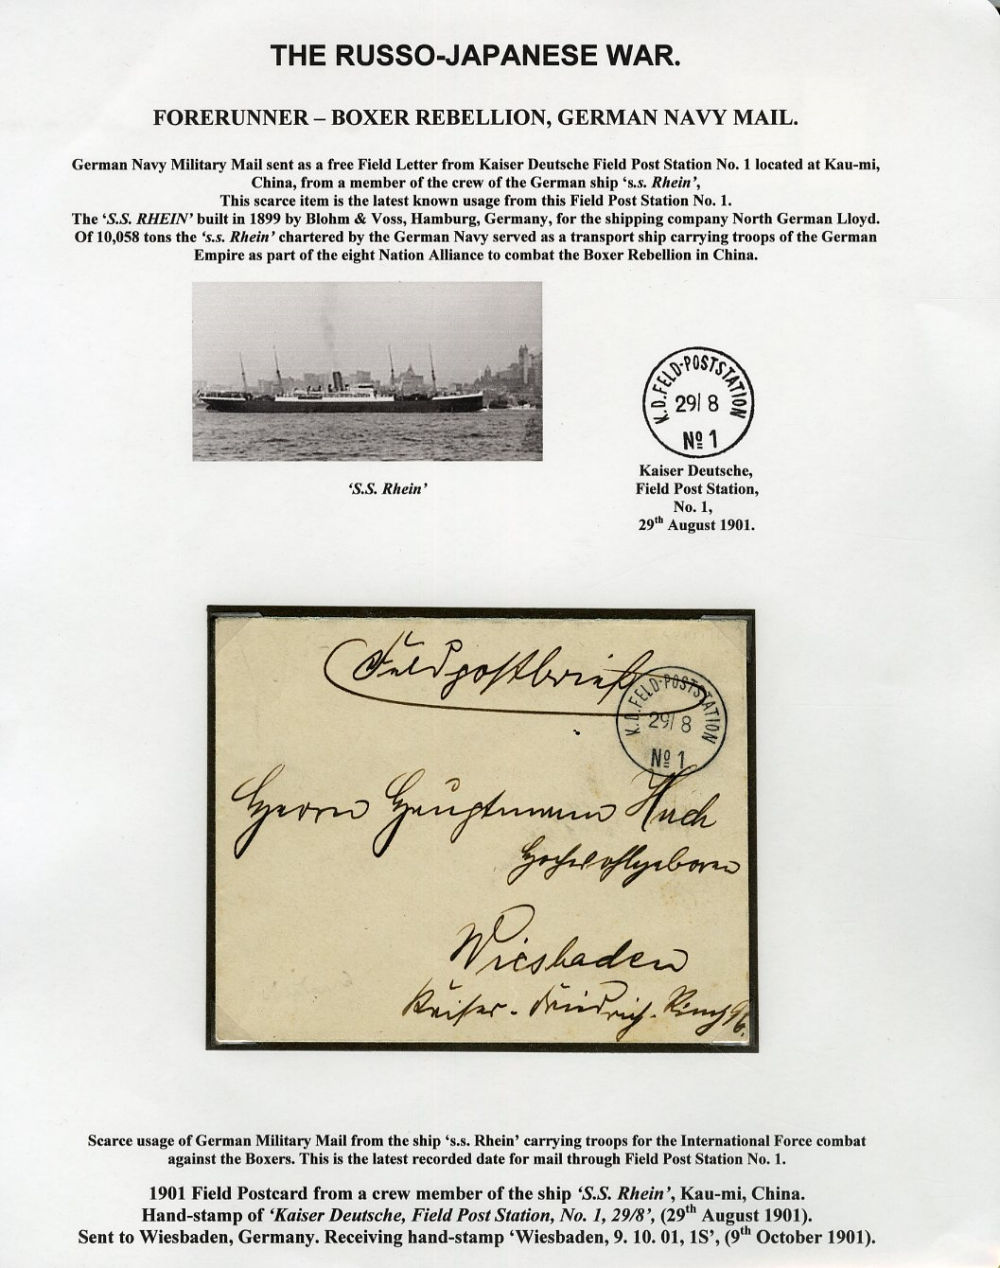 THE RUSSO-JAPANESE WAR.
FORERUNNER – BOXER REBELLION, GERMAN NAVY MAIL.
German Navy Military Mail sent as a free Field Letter from Kaiser Deutsche Field Post Station No. 1 located at Kau-mi,
China, from a member of the crew of the German ship ‘s.s. Rhein’,
This scarce item is the latest known usage from this Field Post Station No. 1.
The ‘S.S. RHEIN’ built in 1899 by Blohm & Voss, Hamburg, Germany, for the shipping company North German Lloyd.
Of 10,058 tons the ‘s.s. Rhein’ chartered by the German Navy served as a transport ship carrying troops of the German
Empire as part of the eight Nation Alliance to combat the Boxer Rebellion in China.
K.D. FELD-POSTSTATION
29/ 8
Nº 1
‘S.S. Rhein’
Kaiser Deutsche,
Field Post Station,
No. 1,
29th August 1901.
Feldpostbrief
K.D. FELD-POSTSTATION
29/ 8
Nº 1
Herrn Hauptmann Huch
Hochwohlgeboren
Wiesbaden
Kaiser-Friedrich-Ring 96.
Scarce usage of German Military Mail from the ship ‘s.s. Rhein’ carrying troops for the International Force combat
against the Boxers. This is the latest recorded date for mail through Field Post Station No. 1.
1901 Field Postcard from a crew member of the ship ‘S.S. Rhein’, Kau-mi, China.
Hand-stamp of ‘Kaiser Deutsche, Field Post Station, No. 1, 29/8’, (29th August 1901).
Sent to Wiesbaden, Germany. Receiving hand-stamp ‘Wiesbaden, 9. 10. 01, 1S’, (9th October 1901).